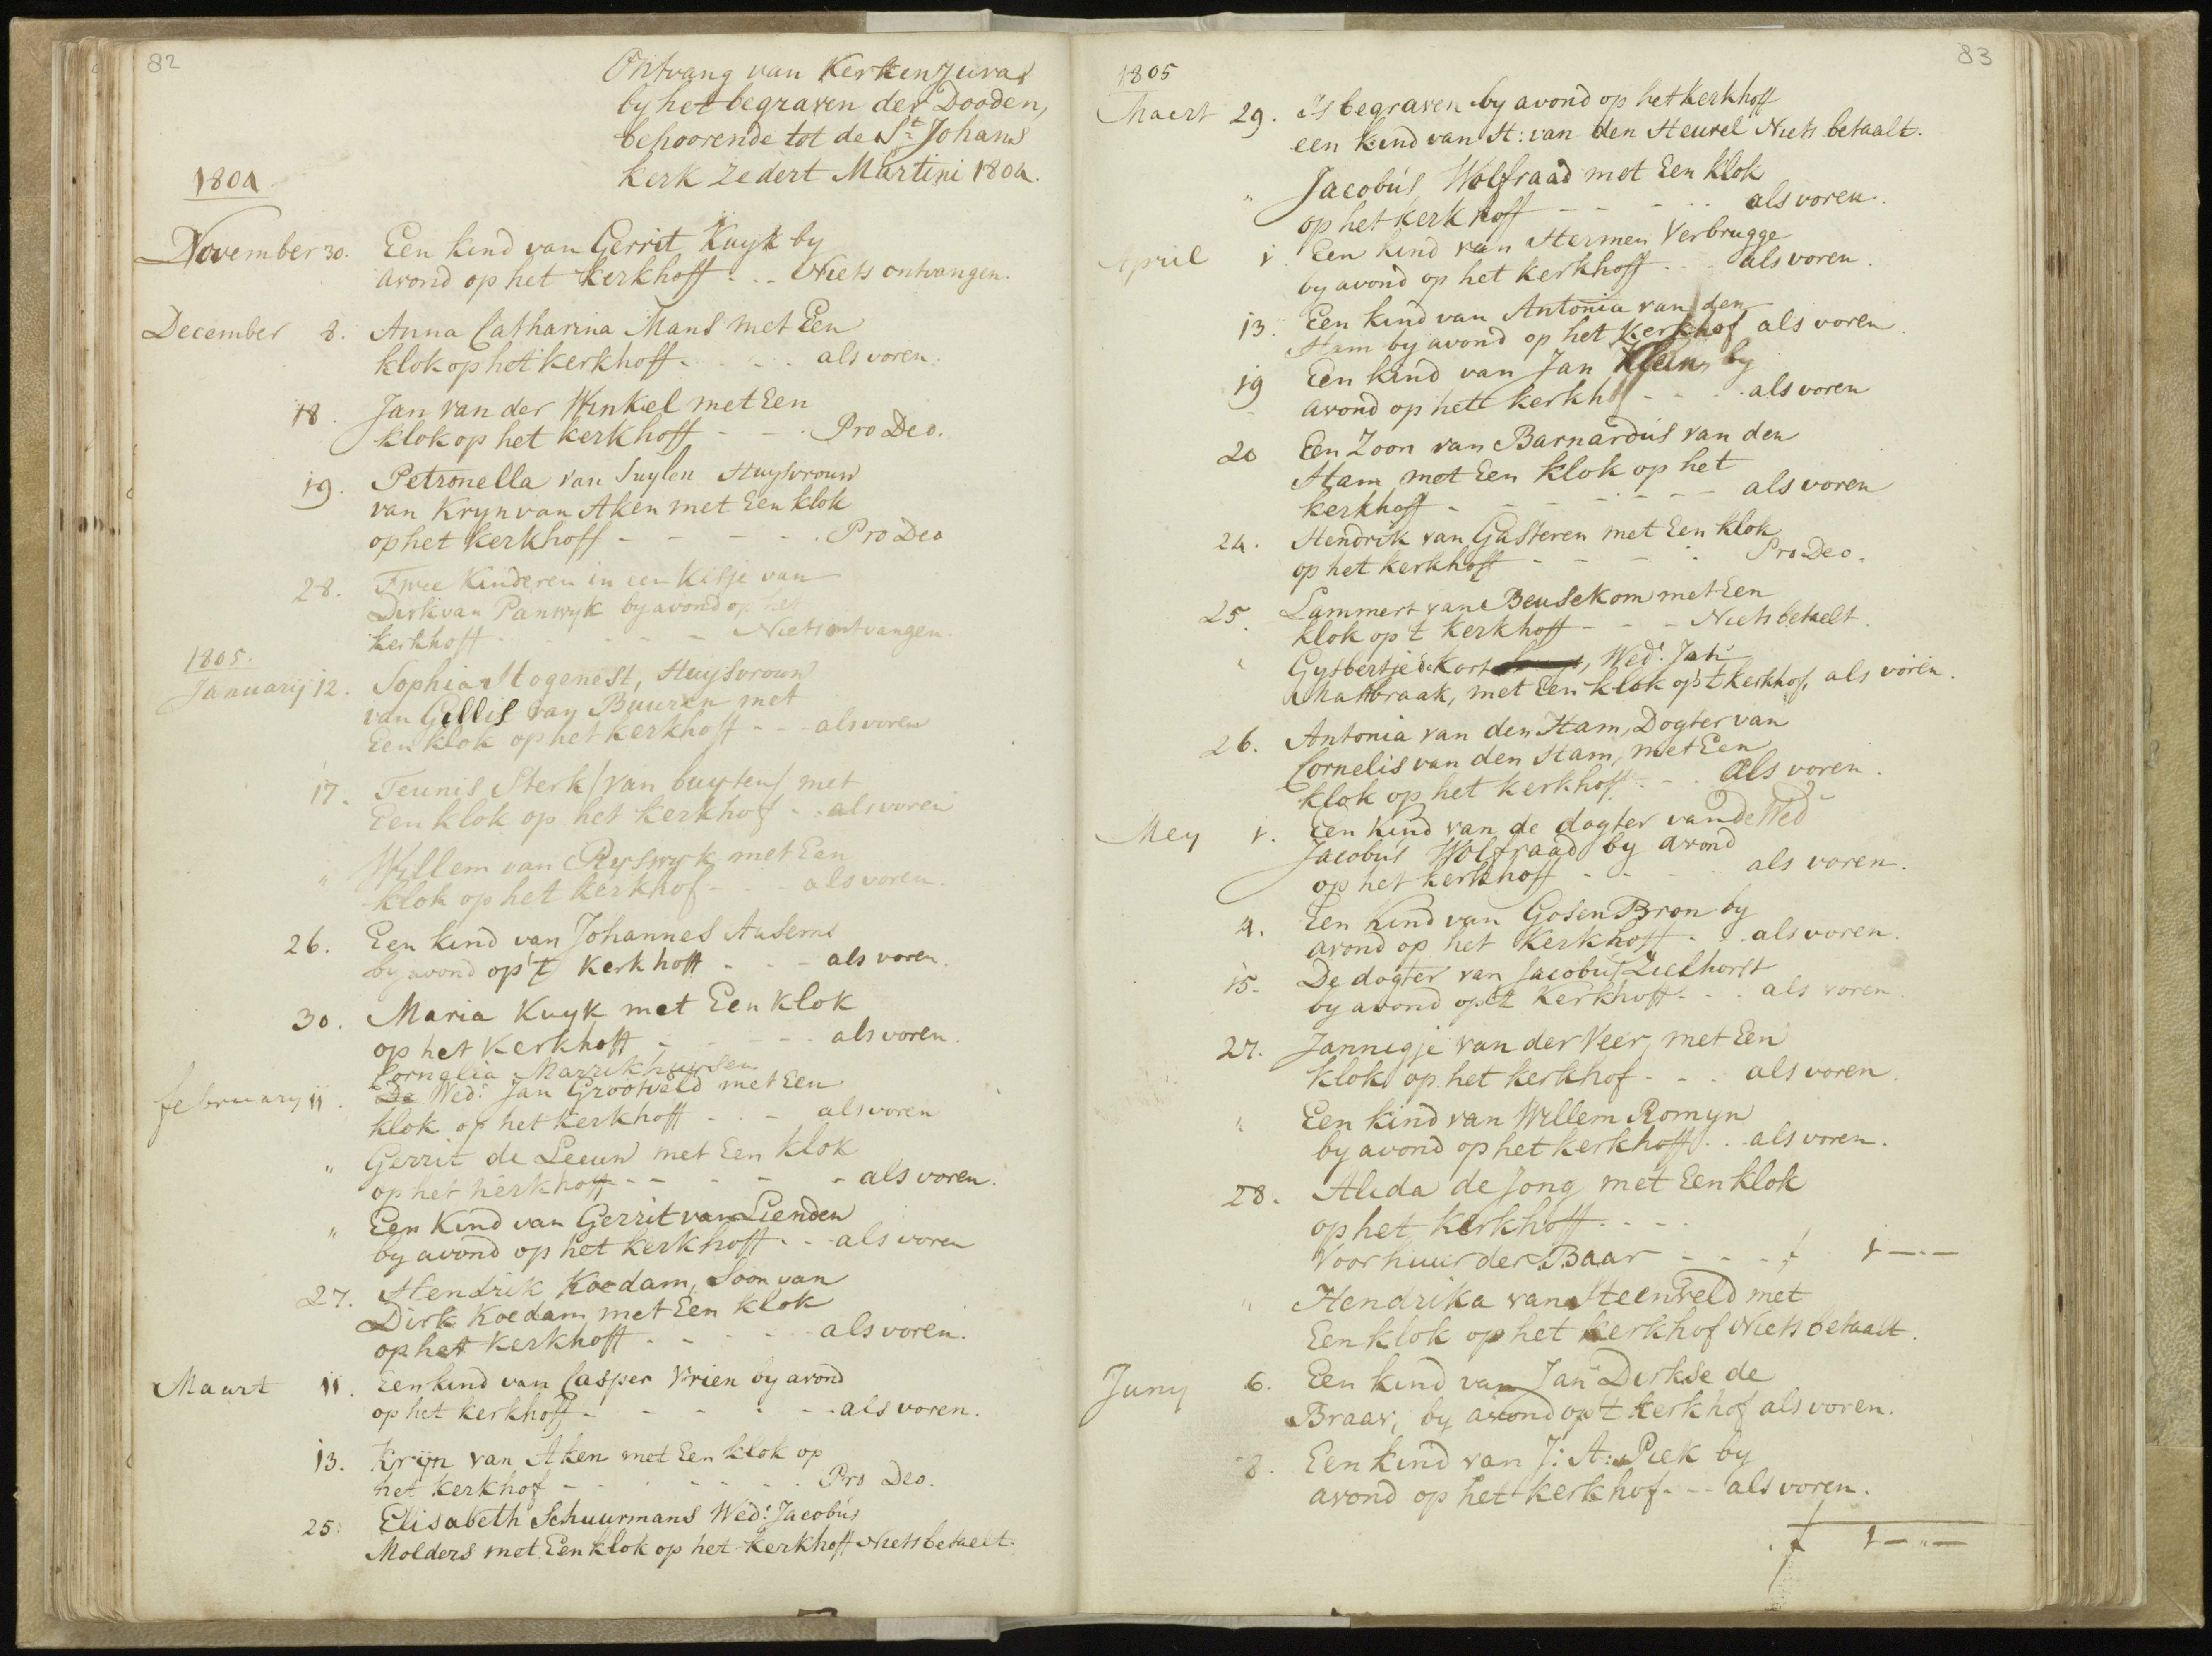 82
Ontvang van Kerkenzuras
by het begraven der Dooden,
behoorende tot de St. Johans
kerk zedert Martini 1804.
1804
November 30. Een kind van Gerrit Kuyk by
avond op het kerkhoff - - - Niets ontvangen.
December 8. Anna Catharina Mans met Een
klok op het kerkhoff - - - - als voren.
18. Jan van der Winkel met Een
klok op het kerkhoff - - - Pro Deo.
19. Petronella van Suylen Huysvrouw
van Kryn van Aken met Een klok
op het kerkhoff - - - - - Pro Deo
28. Twee Kinderen in een Kisje van
Dirk van Panwyk by avond op het
kerkhoff - - - - - Niets ontvangen.
1805.
Januarij 12. Sophia Hogenest, Huysvrouw
van Gillis van Buuren met
Een klok op het kerkhoff - - - als voren
17. Teunis Sterk (van buyten) met
Een klok op het kerkhof - - als voren
" Willem van Ryswyk met Een
klok op het kerkhof - - als voren.
26. Een kind van Johannes Ausems
by avond op 't kerkhoff - - - als voren.
30. Maria Kuyk met Een klok
op het kerkhoff - - - - - als voren.
Cornelia Marrikhuysen
february 11. De Wed: Jan Grootveld met Een
klok op het kerkhoff - - - als voren
" Gerrit de Leeuw met Een klok
op het kerkhoff - - - - - als voren.
" Een Kind van Gerrit van Lienden
by avond op het kerkhoff - - - als voren
27. Hendrik Koedam, Soon van
Dirk Koedam, met Een klok
op het kerkhoff - - - - - als voren.
Maart 11. Een kind van Casper Vrien by avond
op het kerkhoff - - - - - - als voren.
13. Krijn van Aken met Een klok op
het kerkhof - - - - - - - Pro Deo.
25. Elisabeth Schuurmans Wed: Jacobus
Molders met Een klok op het kerkhoff Niets betaelt.
83
1805
Maert 29. Is begraven by avond op het kerkhoff
een kind van H: van den Heuvel Niets betaalt.
" Jacobus Wolfraad met Een klok
op het kerkhoff - - - - - als voren.
April 1. Een kind van Hermen Verbrugge
by avond op het kerkhoff - - - als voren.
13. Een kind van Antonia van den
Ham by avond op het kerkhof als voren.
19 Een kind van Jan Klein, by
avond op hett kerkhoff - - - als voren
20 Een Zoon van Barnardus van den
Ham met Een klok op het
kerkhoff - - - - - - als voren
24. Hendrik van Gasteren met Een klok
op het kerkhoff - - - - - Pro Deo.
25. Lammert van Beusekom met Een
klok op 't kerkhoff - - - Niets betaelt.
" Gysbertje de Kort , Wed: Jan
Mattbraak, met Een klok op 't kerkhof, als voren.
26. Antonia van den Ham, Dogter van
Cornelis van den Ham, met Een
klok op het kerkhoff - - - als voren.
Mey 1. Een Kind van de dogter van de Wed
Jacobus Wolfraad by avond
op het kerkhoff - - - - - als voren.
4. Een kind van Gosen Bron by
avond op het Kerkhoff - - - als voren.
15. De dogter van Jacobus Zielhorst
by avond op 't Kerkhoff - - - als voren
27. Jannigje van der Veer, met Een
klok op het kerkhof - - - als voren.
" Een kind van Willem Romyn
by avond op het kerkhoff - - - als voren.
28. Alida de Jong met Een klok
op het kerkhoff - - - -
Voor huur der Baar - - - - f 1-"-
" Hendrika van Steenveld met
Een klok op het kerkhof Niets betaalt.
Juny 6. Een kind van Jan Dirkse de
Braar, by avond op 't kerkhof als voren.
8. Een kind van J: A: Piek by
avond op het kerkhof - - - als voren.
f 1-"-